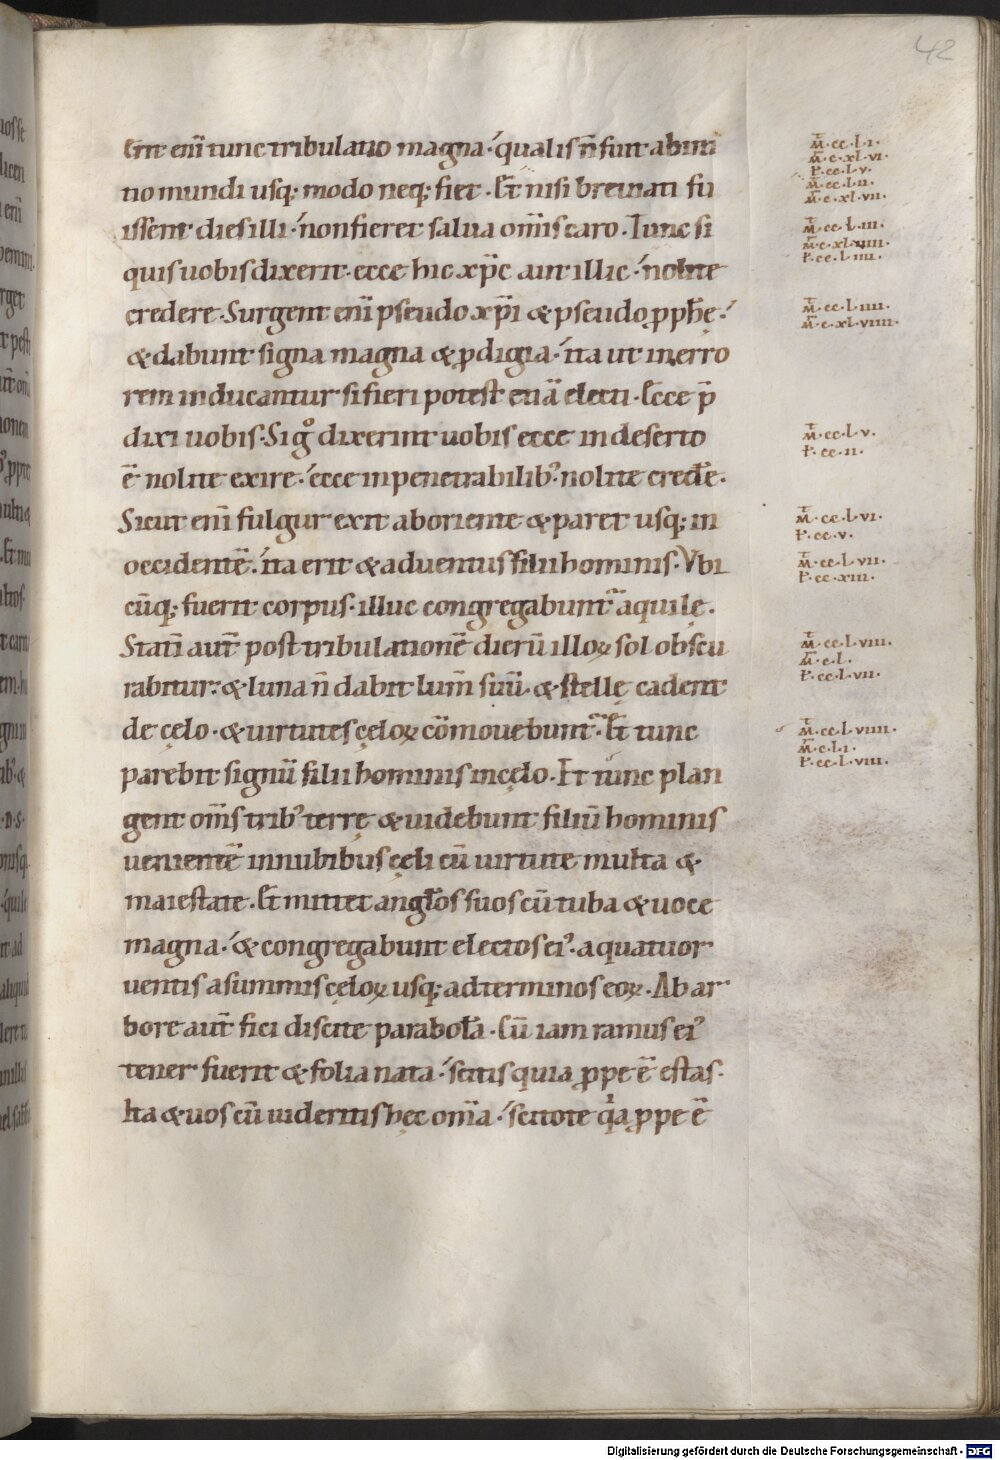 42
Erit eni̅ tunc tribulatio magna·́ qualis n̅ fuit ab initi
no mundi usq; modo neq; fiet· Et nisi breuiati fu
issent dies illi·́ non fieret salua om̅is caro· Tunc si
quis uobis dixerit· ecce hic xp̅c aut illic·́ nolite
credere· Surgent eni̅ pseudo xp̅i & pseudo ꝓph̅ę·́
& dabunt signa magna & ꝓdigia·́ ita ut in erro
rem inducantur si fieri potest etia̅ electi· Ecce p̅
dixi uobis· Si gͦ dixerint uobis ecce in deserto
e̅ nolite exire·́ ecce in penetrabilib᾽ nolite cred̅e·
Sicut eni̅ fulgur exit ab oriente & paret usq; in
occidente̅·́ ita erit & aduentus filii hominis· Vbi
cu̅q; fuerit corpus· illuc congregabunt᾽ aquilę·
Stati̅ aut̅ post tribulatione̅ dieru̅ illoꝝ sol obscu
rabitur·́ & luna n̅ dabit lum̅ suu̅· & stellę cadent
de cęlo· & uirtutes cęloꝝ co̅mouebunt᾽· Et tunc
parebit signu̅ filii hominis in cęlo· Et tunc plan
gent om̅s trib᾽ terrę & uidebunt filiu̅ hominis
ueniente̅ in nubibus cęli cu̅ uirtute multa &
maiestate· Et mittet angl̅os suos cu̅ tuba & uoce
magna·́ & congregabunt electos ei᾽ a quatuor
uentis a summis cęloꝝ usq; ad terminos eoꝝ· Ab ar
bore aut̅ fici discite parabol̅a· Cu̅ iam ramus ei᾽
tener fuerit & folia nata·́ scitis quia ꝓpe e̅ estas·
Ita & uos cu̅ uideritis hęc om̅a·́ scitote qia ꝓpe e̅
M̅·cc·l·i·
M̅·c·xl·vi·
L̵·cc·l·v·
M̅·cc·l·ii·
M̅·c·xl·vii·
M̅·cc·l·iii·
M̅·c·xl·viii·
L̵·cc·l·iiii·
M̅·cc·l·iiii·
M̅·c·xl·viiii·
M̅·cc·l·v·
L̵·cc·ii·
M̅·cc·l·vi·
L̵·cc·v·
M̅·cc·l·vii·
L̵·cc·xiii·
M̅·cc·l·viii·
M̅·c·l·
L̵·cc·l·vii·
M̅·cc·l·viiii·
M̅·c·l·i·
L̵·cc·l·viii·
Digitalisierung gefördert durch die Deutsche Forschungsgemeinschaft - DFG